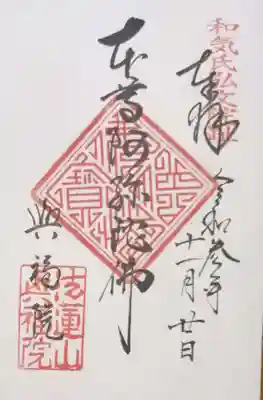 和気氏弘文
奉拝
令和参年
十一月廿日
本尊阿弥陀佛
興福院
法蓮山
興福院